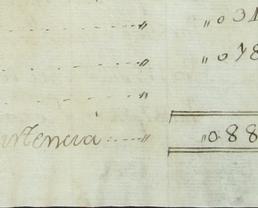 〃 〃031
〃 〃078
〃
istencia 〃 〃088